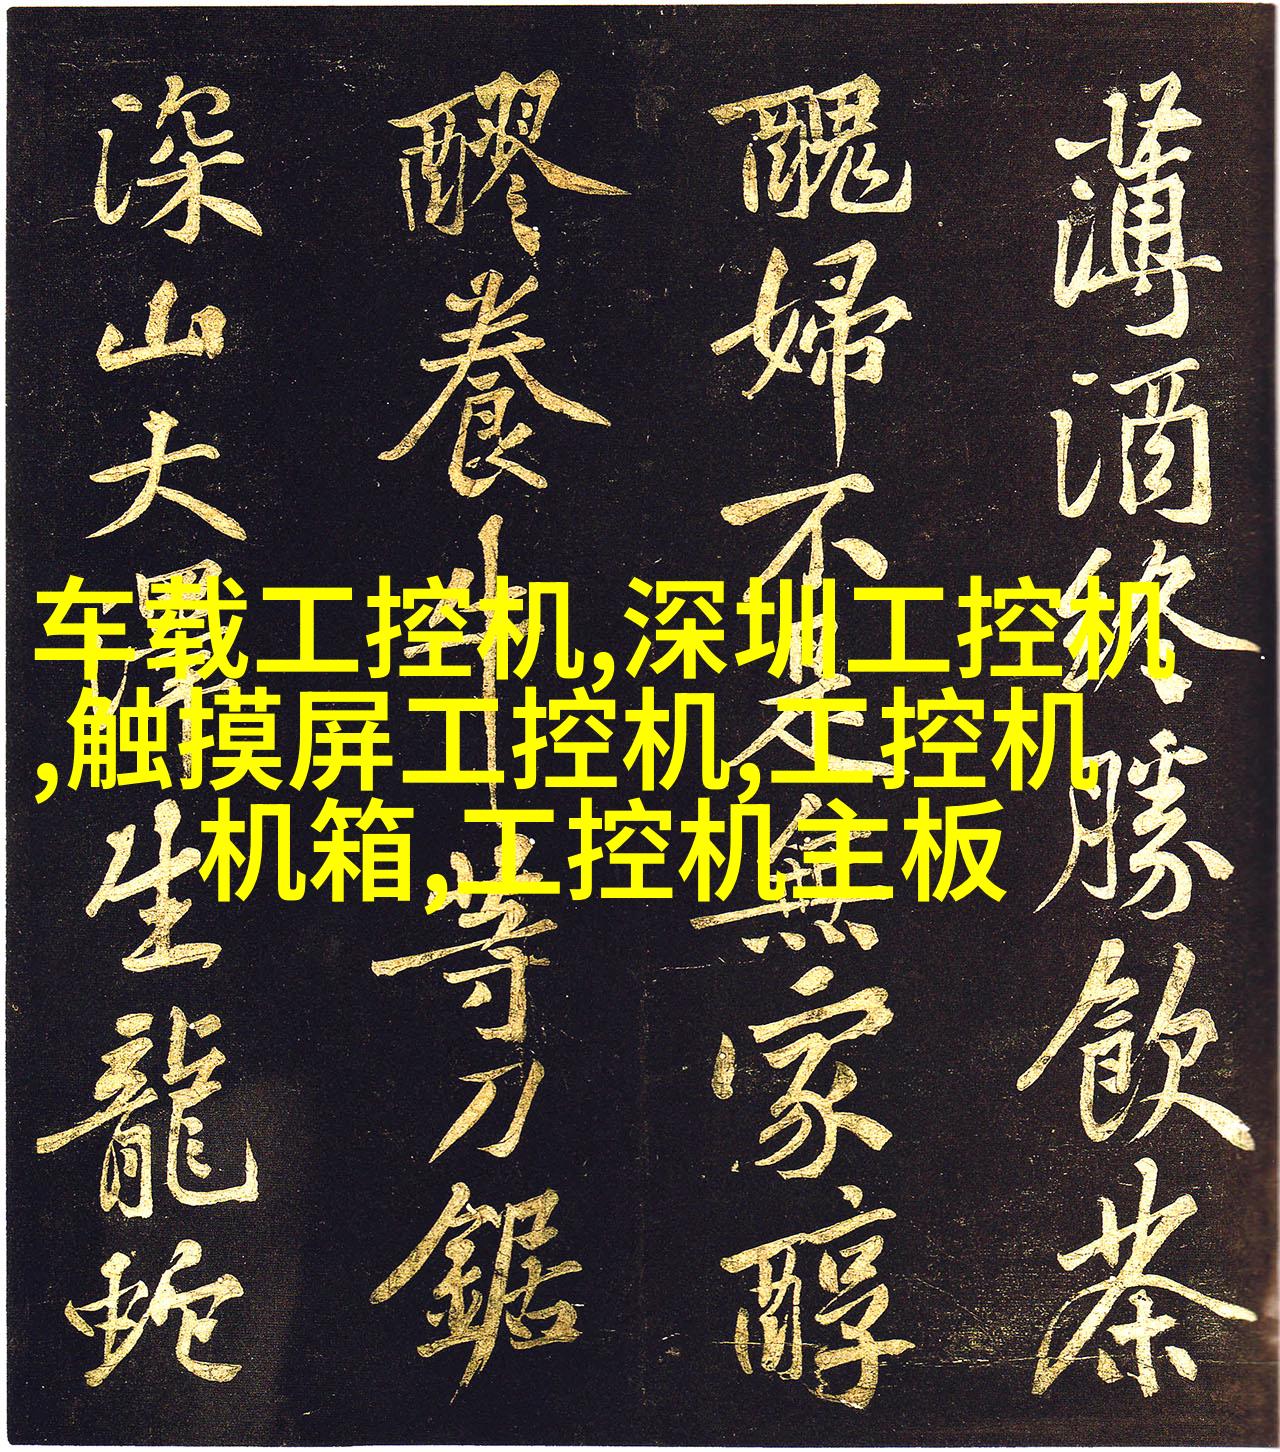 薄酒終勝飲茶
醜婦不是無家醇
醪養牛等刀鋸
深山大澤生龍蛇
车载工控机,深圳工控机
,触摸屏工控机,工控机
机箱,工控机主板